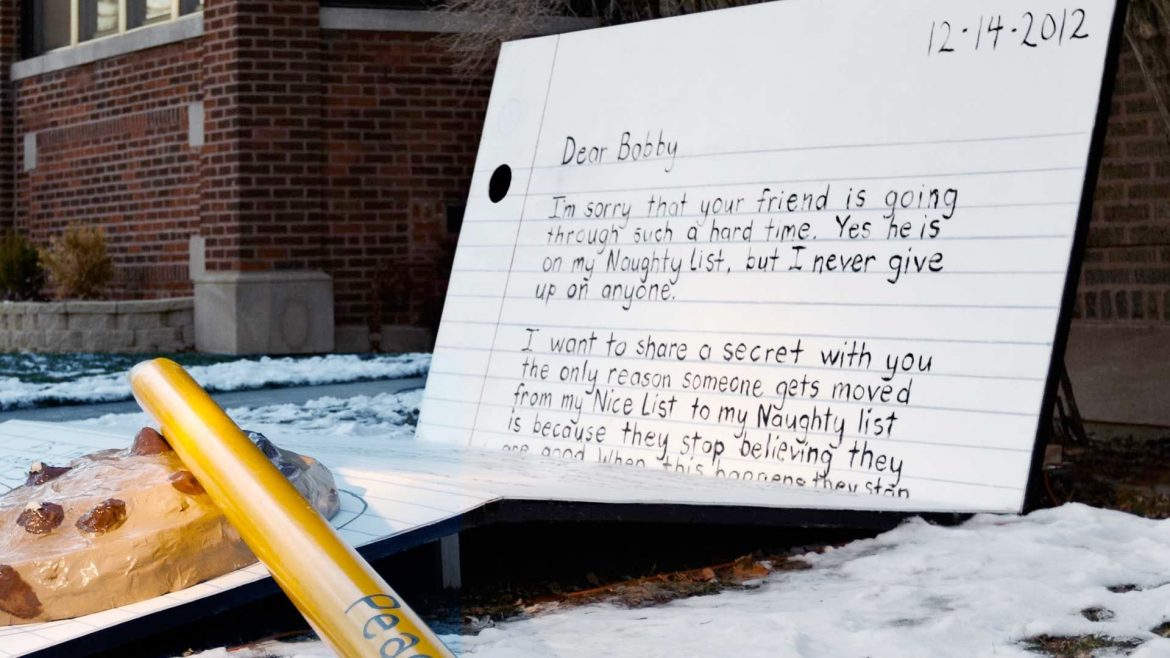 12·14·2012
Dear Bobby
I'm sorry that your friend is going
through such a hard time. Yes he is
on my Naughty List, but I never give
up on anyone.
I want to share a secret with you
the only reason someone gets moved
from my Nice List to my Naughty list
is because they stop believing they
are good When this happens they stop
Peac